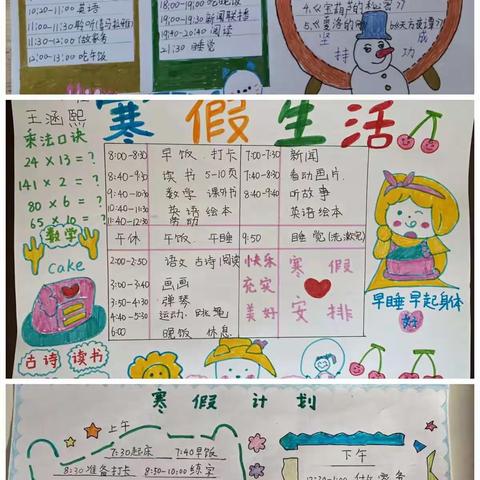 10:20-11:00 英语
11:30-12:00 做家务
12:00-13:00 吃午饭
18:00-19:00 吃晚饭
19:00-19:30 新闻联播
19:40-20:40 阅读
21:30 睡觉
4.《宝葫芦的秘密》
坚持
成功
王涵熙
寒假生活
乘法口诀
24 × 13 = ?
141 × 2 = ?
80 × 6 = ?
65 × 10 = ?
数学
cake
古诗 读书
8:00-8:30 早饭 打卡 7:00-7:30 新闻
8:40-9:30 读书 5-10页 7:30-8:30 看动画片
9:40-10:30 数学 课外书 8:40-9:40 听故事
10:40-11:30 英语 绘本 英语绘本
11:40-12:30 劳动
午休 午饭、午睡 9:50 睡觉(洗漱完)
2:00-2:50 语文 古诗 阅读
3:00-3:40 画画
3:50-4:30 弹琴
4:40-5:30 运动、跳绳
6:00 晚饭 休息
快乐
充实
美好
寒假
安排
早睡早起身体
好
寒假计划
上午
7:30起床 7:40早饭
8:30准备打卡 8:50-10:00练字
下午